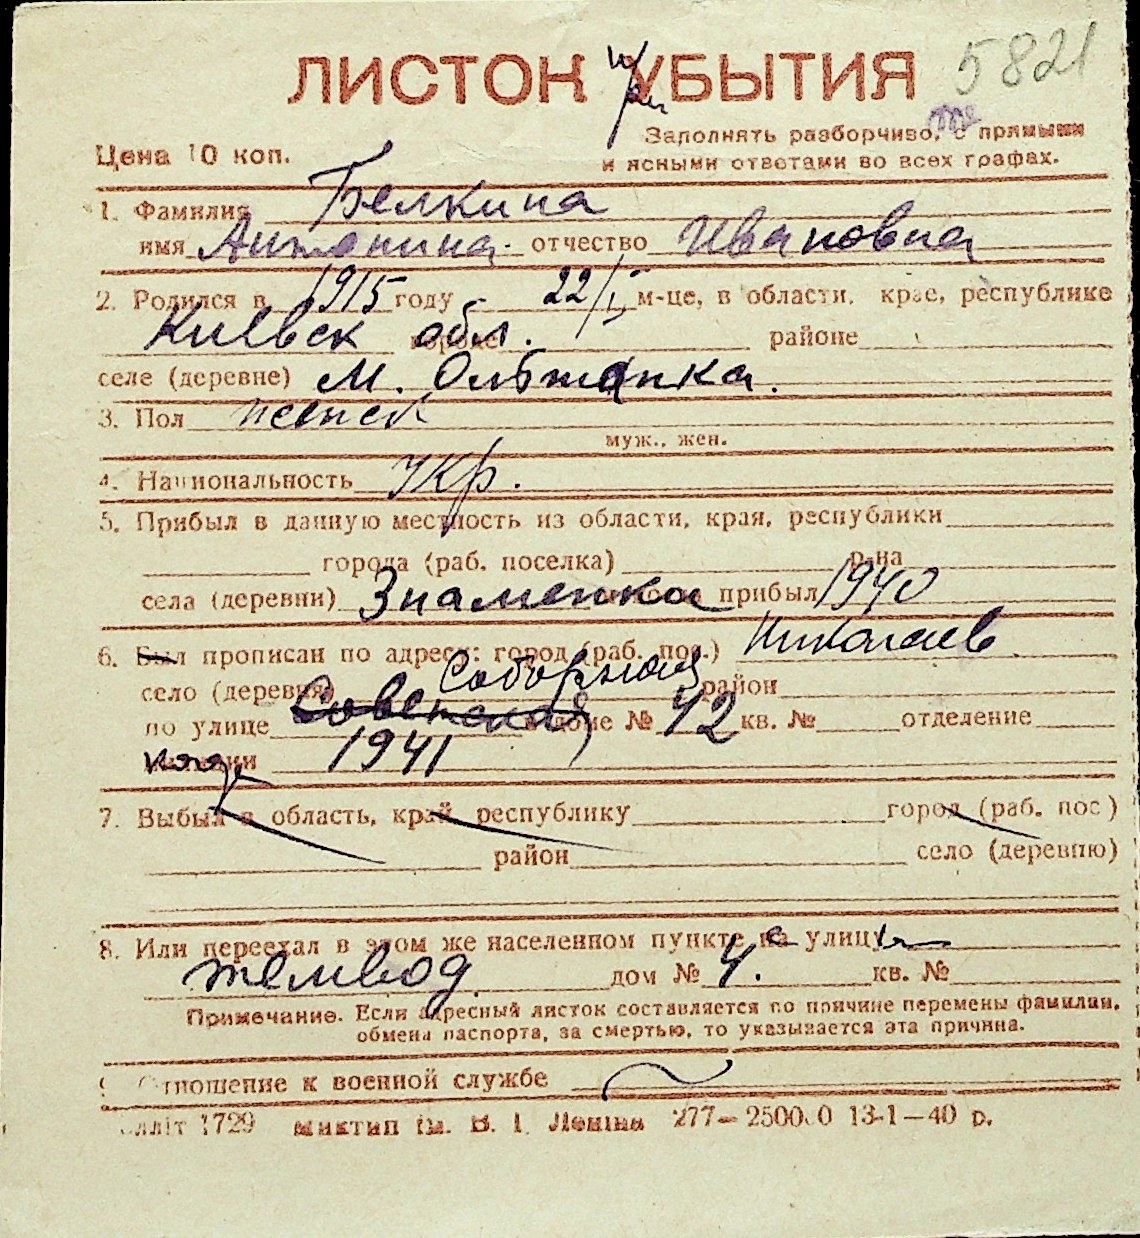 5821
ЛИСТОК УБЫТИЯ
при
Цена 10 коп.
Заполнять разборчиво, с прямыми
и ясными ответами во всех графах.
1. Фамилия Белкина
имя Антонина отчество Ивановна
2. Родился в 1915 году 22/ м-це, в области, крае, республике
Киевск обл. городе районе
селе (деревне) М. Ольшанка.
3. Пол женск
муж., жен.
4. Национальность укр.
5. Прибыл в данную местность из области, края, республики
города (раб. поселка) р-на
села (деревни) Знаменка прибыл 1940
6. Был прописан по адресу: город (раб. пос.) Николаев
село (деревня) Соборная район
по улице Советская в доме № 42 кв. № отделение
милиции 1941
7. Выбыл в область, край, республику город (раб. пос)
район село (деревню)
8. Или переехал в этом же населенном пункте на улицу
Темвод дом № 4. кв. №
Примечание. Если адресный листок составляется по причине перемены фамилии,
обмена паспорта, за смертью, то указывается эта причина.
Отношение к военной службе
лліт 1729 Миктип ім. В. І. Леніна 277—250000 13-1—40 р.